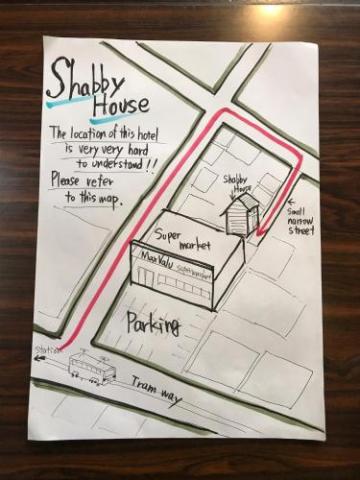 Shabby
House
The location of this hotel
is very very hard
to understand!!
Please refer
to this map.
Shabby
House
Small
narrow
street
Super
market
MaxValu Supermarket
Parking
Station
Tram way